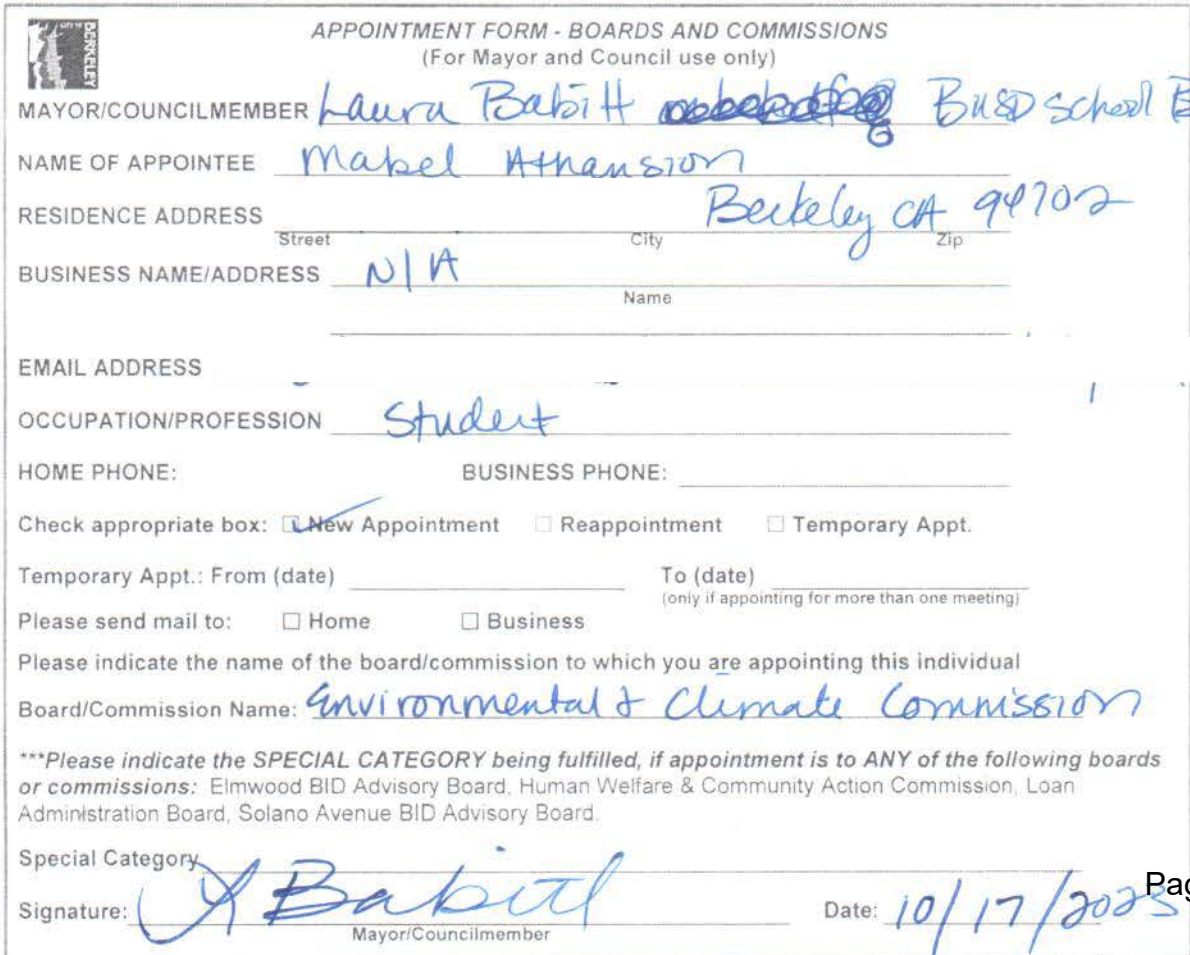 BERKELEY
APPOINTMENT FORM - BOARDS AND COMMISSIONS
(For Mayor and Council use only)
MAYOR/COUNCILMEMBER Laura Babitt BUSD School B
NAME OF APPOINTEE Mabel Athansion
RESIDENCE ADDRESS Berkeley CA 94702
Street City Zip
BUSINESS NAME/ADDRESS N/A
Name
EMAIL ADDRESS
OCCUPATION/PROFESSION Student
HOME PHONE: BUSINESS PHONE:
Check appropriate box: New Appointment Reappointment Temporary Appt.
Temporary Appt.: From (date) To (date)
(only if appointing for more than one meeting)
Please send mail to: Home Business
Please indicate the name of the board/commission to which you are appointing this individual
Board/Commission Name: Environmental & Climate Commission
***Please indicate the SPECIAL CATEGORY being fulfilled, if appointment is to ANY of the following boards
or commissions: Elmwood BID Advisory Board, Human Welfare & Community Action Commission, Loan
Administration Board, Solano Avenue BID Advisory Board.
Special Category
Signature: L Babitt Date: 10/17/2023 Pag
Mayor/Councilmember